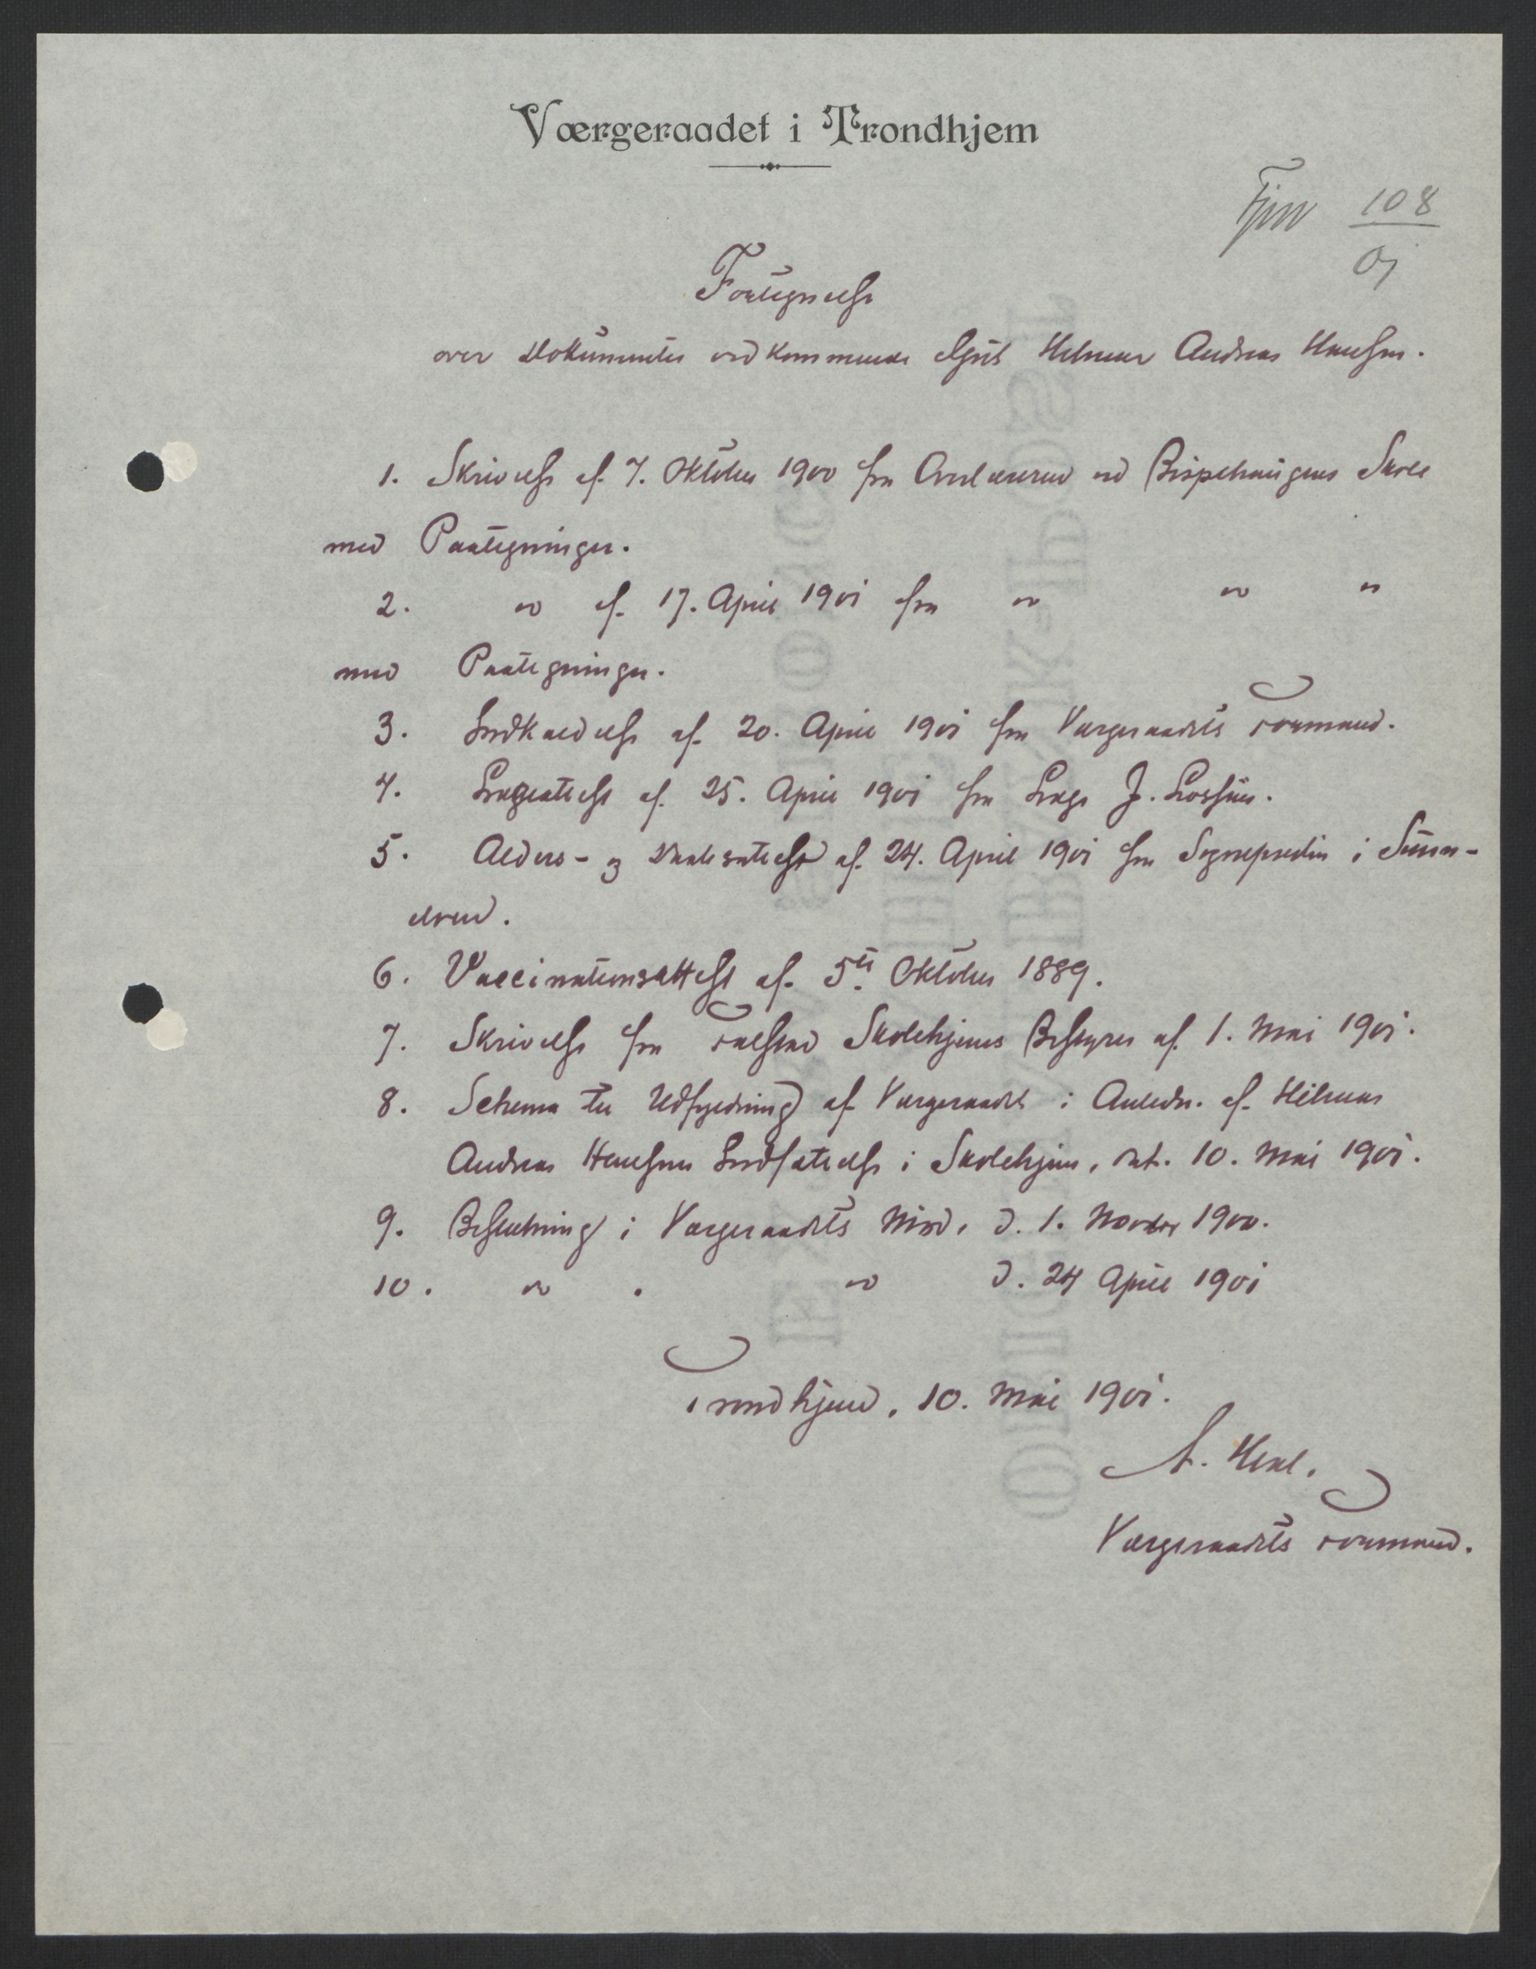 Værgeraadet i Trondhjem
108
01
Fortegnelse
over Dokumenter vedkommende Gut Helmer Andreas Hansen.
1. Skrivelse af 7. Oktober 1900 fra Overlæreren ved Bispehaugens Skole
med Paategninger.
2. " af 17. April 1901 fra " " "
med Paategninger.
3. Indkaldelse af 20. April 1901 fra Værgeraadets Formand.
4. Lægeattest af 25. April 1901 fra Læge J.
5. Alders- og Daabsattest af 24. April 1901 fra Sogneprediker i
6. Vaccinationsattest af 5te Oktober 1889.
7. Skrivelse fra Falstad Skolehjems Bestyrer af 1. Mai 1901.
8. Schema til Udfyldning af Værgeraadet i Anledn. af Hilmar
Andreas Hansens Indsættelse i Skolehjem, dat. 10. Mai 1901.
9. Beslutning i Værgeraadets Møde d. 1. Novbr 1900.
10. " . " d. 24 April 1901
Trondhjem, 10. Mai 1901.
Værgeraadets Formand.